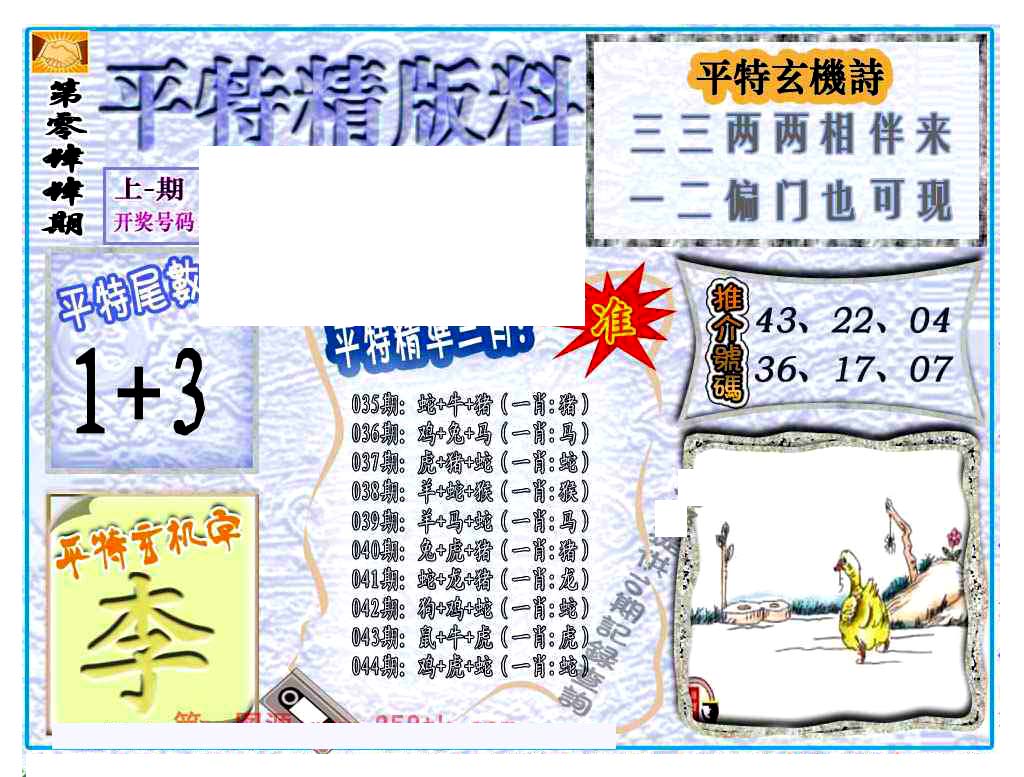 第零肆肆期
平特精版料
上-期
开奖号码
平特玄機詩
三三两两相伴来
一二偏门也可现
平特尾數
1+3
准
推介號碼
43、22、04
36、17、07
035期：蛇+牛+猪（一肖:猪）
036期：鸡+兔+马（一肖:马）
037期：虎+猪+蛇（一肖:蛇）
038期：羊+蛇+猴（一肖:猴）
039期：羊+马+蛇（一肖:马）
040期：兔+虎+猪（一肖:猪）
041期：蛇+龙+猪（一肖:龙）
042期：狗+鸡+蛇（一肖:蛇）
043期：鼠+牛+虎（一肖:虎）
044期：鸡+虎+蛇（一肖:蛇）
平特玄机字
李
期記録查詢